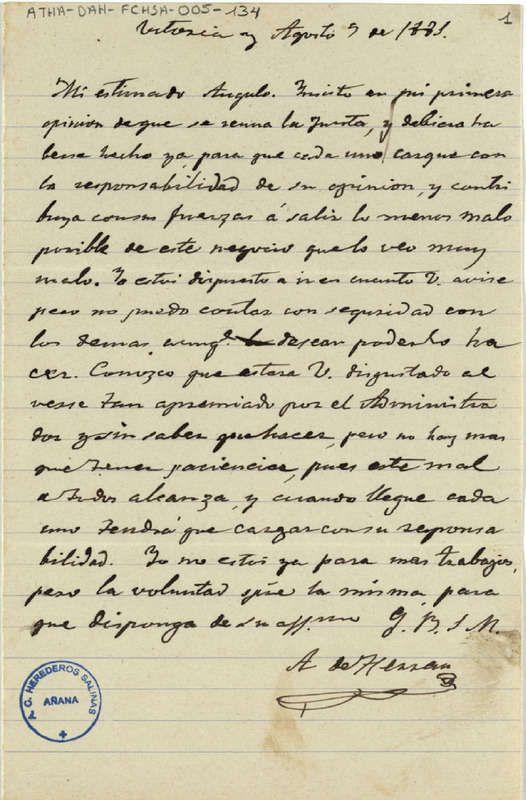 ATHA-DAH-FCHSA-005-134
1
Vitoria y Agosto 9 de 1881.
Mi estimado Angulo. Insisto en mi primera
opinion de que se reuna la Junta, y debiera ha
berse hecho ya, para que cada uno cargue con
la responsabilidad de su opinion, y contri
buya con sus fuerzas á salir lo menos malo
posible de este negocio que lo veo muy
malo. Yo estoi dispuesto a ir en cuanto V. avise
pero no puedo contar con seguridad con
los demas aunq.e desean poderlo ha
cer. Conozco que estara V. disgustado al
verse tan apremiado por el Administra
dor y sin saber que hacer, pero no hay mas
que tener paciencia, pues este mal
a todos alcanza, y cuando llegue cada
uno tendrá que cargar con su reponsa
bilidad. Yo no estoi ya para mas trabajos,
pero la voluntad es la misma para
que disponga de su aff.mo Q. B. S. M.
A. de Herran
A. C. HEREDEROS SALINAS
AÑANA